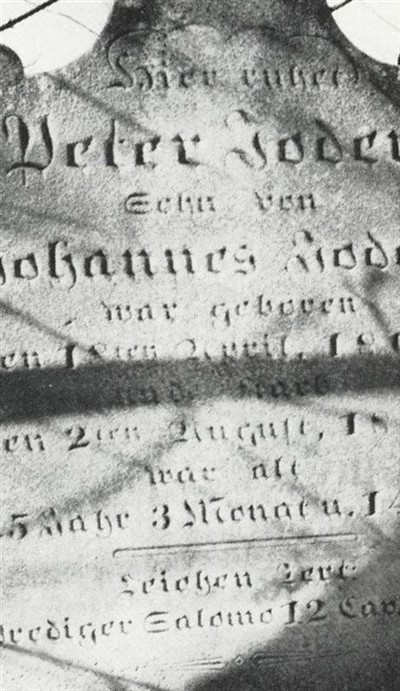 Hier ruhet
Peter Joder
Sohn von
Johannes Jode
war geboren
en 18ten April, 18
und starb
en 2ten August, 18
war alt
5 Jahr 3 Monat u. 14
Leichen Text
Prediger Salomo 12 Cap.